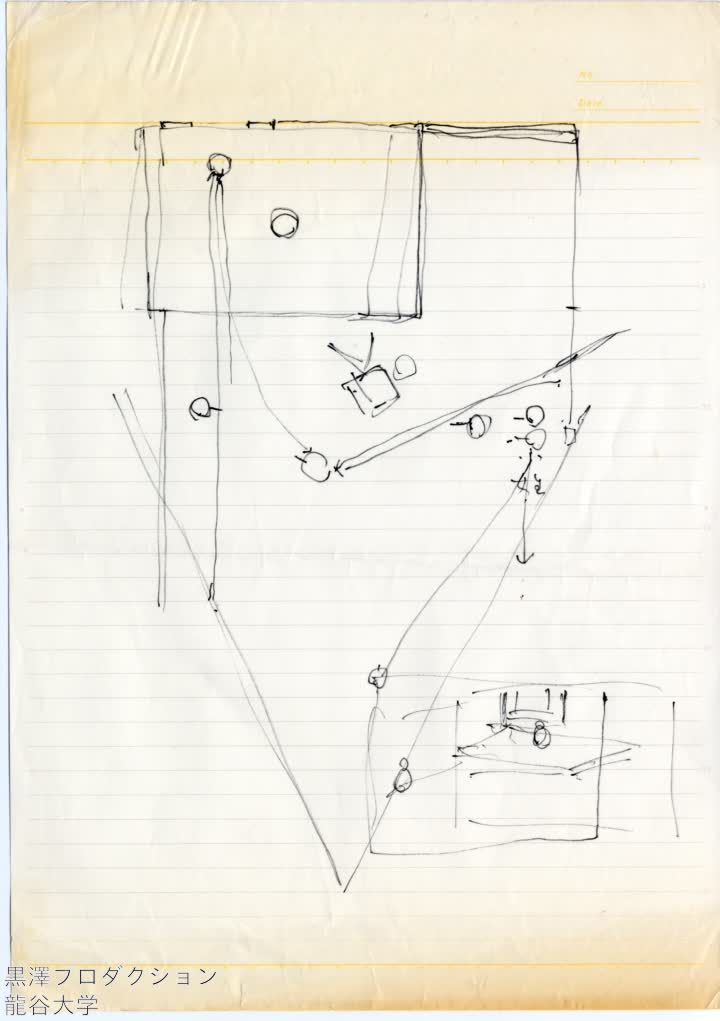 No.
Date
黒澤フロダクション
龍谷大学